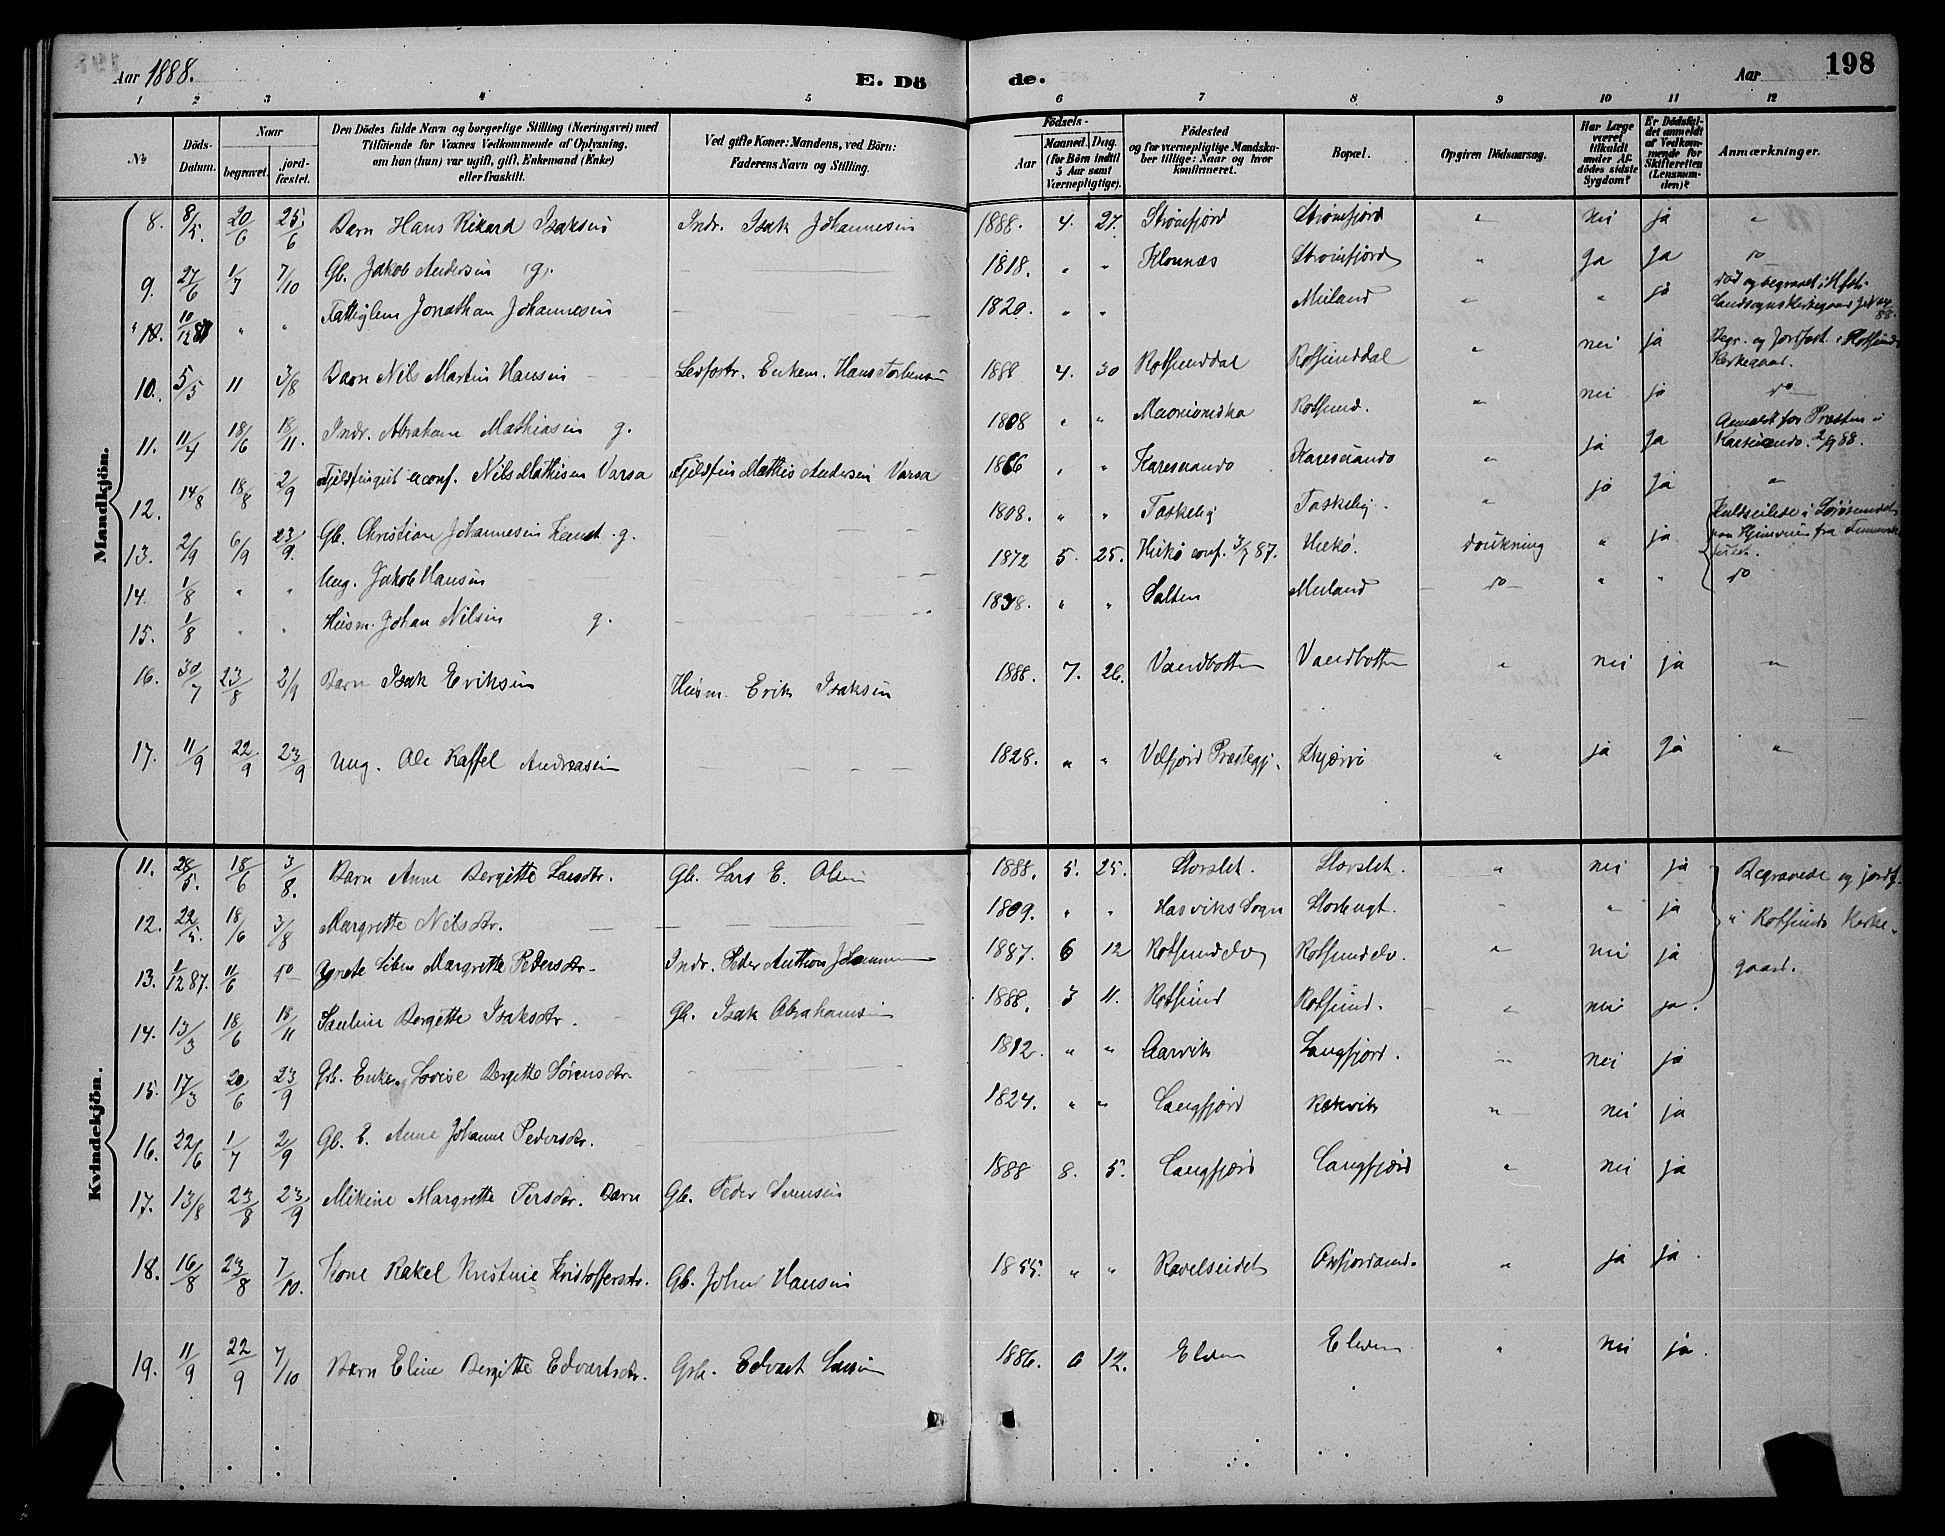 Aar 1888. E. Dö de. Aar 198
1 2 3 4 5 6 7 8 9 10 11 12
No
Döds-Datum.
Naar
begravet.
jord-fæstet.
Den Dödes fulde Navn og borgerlige Stilling (Næringsvei) med
Tilföiende for Voxnes Vedkommende af Oplysning,
om han (hun) var ugift, gift, Enkemand (Enke)
eller fraskilt.
Ved gifte Koner: Mandens, ved Börn:
Faderens Navn og Stilling.
Födsels-
Aar
Maaned. Dag.
(for Börn indtil
5 Aar samt
Værnepligtige).
Födested
og for værnepligtige Mandska-
ber tillige: Naar og hvor
konfirmeret.
Bopæl.
Opgiven Dödsaarsag.
Har Læge
været
tilkaldt
under Af-
dödes sidste
Sygdom?
Er Dödsfal-
det anmeldt
af Vedkom-
mende for
Skifteretten
(Lensman-
den)?
Anmærkninger.
Mandkjön.
8. 8/5. 20/6 25/6 Barn Hans Rikard Isaksen Indr. Isak Johannesen 1888. 4. 27. Strömfjord Strömfjord " nei ja "
9. 27/6 1/7 7/10 Gb. Jakob Andersen g. 1818. " " Klounæs Strömfjord " ja ja do
10/12 87 " " Fattiglem Jonathan Johannesen 1820. " " Meiland " " ja död og begravet i
10. 5/5 11 3/8 Barn Nils Martin Hansen Enkem. Hans 1888 4. 30 Rotsunddal Rotsunddal " nei ja Begr. og Jordfæst. i Rotsunds Kirkegaard.
11. 11/4 18/6 18/11. Indr. Abraham Mathiasen g. 1808 " " Rotsund. " nei ja do
12. 14/8 18/8 2/9 Nils Mathisen Varsa Fjeldfin Mathis Andersen Varsa 1866 " " Karesuando Karesuando " ja ja Anmeldt for Præsten i Karesuando. 2/9 88.
13. 2/9 6/9 23/9. Gb. Christian Johannesen g. 1808. " " Taskeby Taskeby. " ja ja "
14. 1/8 " " Ung. Jakob Hansen 1872 5. 25. Hukö conf. 3/7 87. Hukö. drukning " ja Kuldseilede i paa Hjemveien fra
15. 1/8 " " Husm. Johan Nilsen g. 1838. " " Salten Meiland do " " do
16. 30/7 23/8 2/9 Barn Isak Eriksen Husm. Erik Isaksen 1888. 7. 26. Vandbotten Vandbotten " nei ja "
17. 11/9 22/9 23/9 Ung. Ole Raffel Andreasen 1828. " " Velfjord Præstegj. Skjærvö " ja ja "
Kvindekjön.
11. 28/5. 18/6 3/8. Barn Anne Bergitte Larsdtr. Gb. Lars E. Olsen 1888. 5. 25. Storslet. Storslet. " nei ja Begravede og jordf.
12. 22/5. 18/6 3/8 Margrette Nilsdtr. 1809. " " Hasviks Sogn Storbugt. " " ja i Rotsunds Kirke-
13. 1/12 87. 11/6 do Margrette Pedersdtr. Indr. Peder Anthon 1887. 6 12 Rotsundelv Rotsundelv. " nei ja gaard.
14. 13/3 18/6 18/11 Pauline Bergette Isaksdtr. Gb. Isak Abrahamsen 1888. 3 11. Rotsund Rotsund. " nei ja.
15. 17/3 20/6 23/9 Gb. Enke. Lovise Bergitte Sörensdtr. 1812. " " Aarvik Langfjord. " nei ja
16. 22/6 1/7 2/9 Gb. E. Anne Johanne Pedersdtr. 1824. " " Langfjord " nei ja
17. 13/8 23/8 23/9 Mikine Margrette Persdtr. Barn Gb. Peder 1888 8. 5. Langfjord Langfjord " nei ja
18. 16/8 23/8 7/10. Kone Rakel Kristine Kristoffersdtr. Gb. Johan Hansen 1855. " " Ravelseidet Oxfjordvand. " ja ja.
19. 11/9 22/9 7/10 Barn Eline Bergitte Edvartsdtr. Edvart Larsen 1886. 6 12. Elven Elven " nei ja.